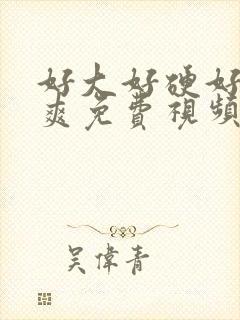 好大好硬好
爽免費視頻
吴偉青